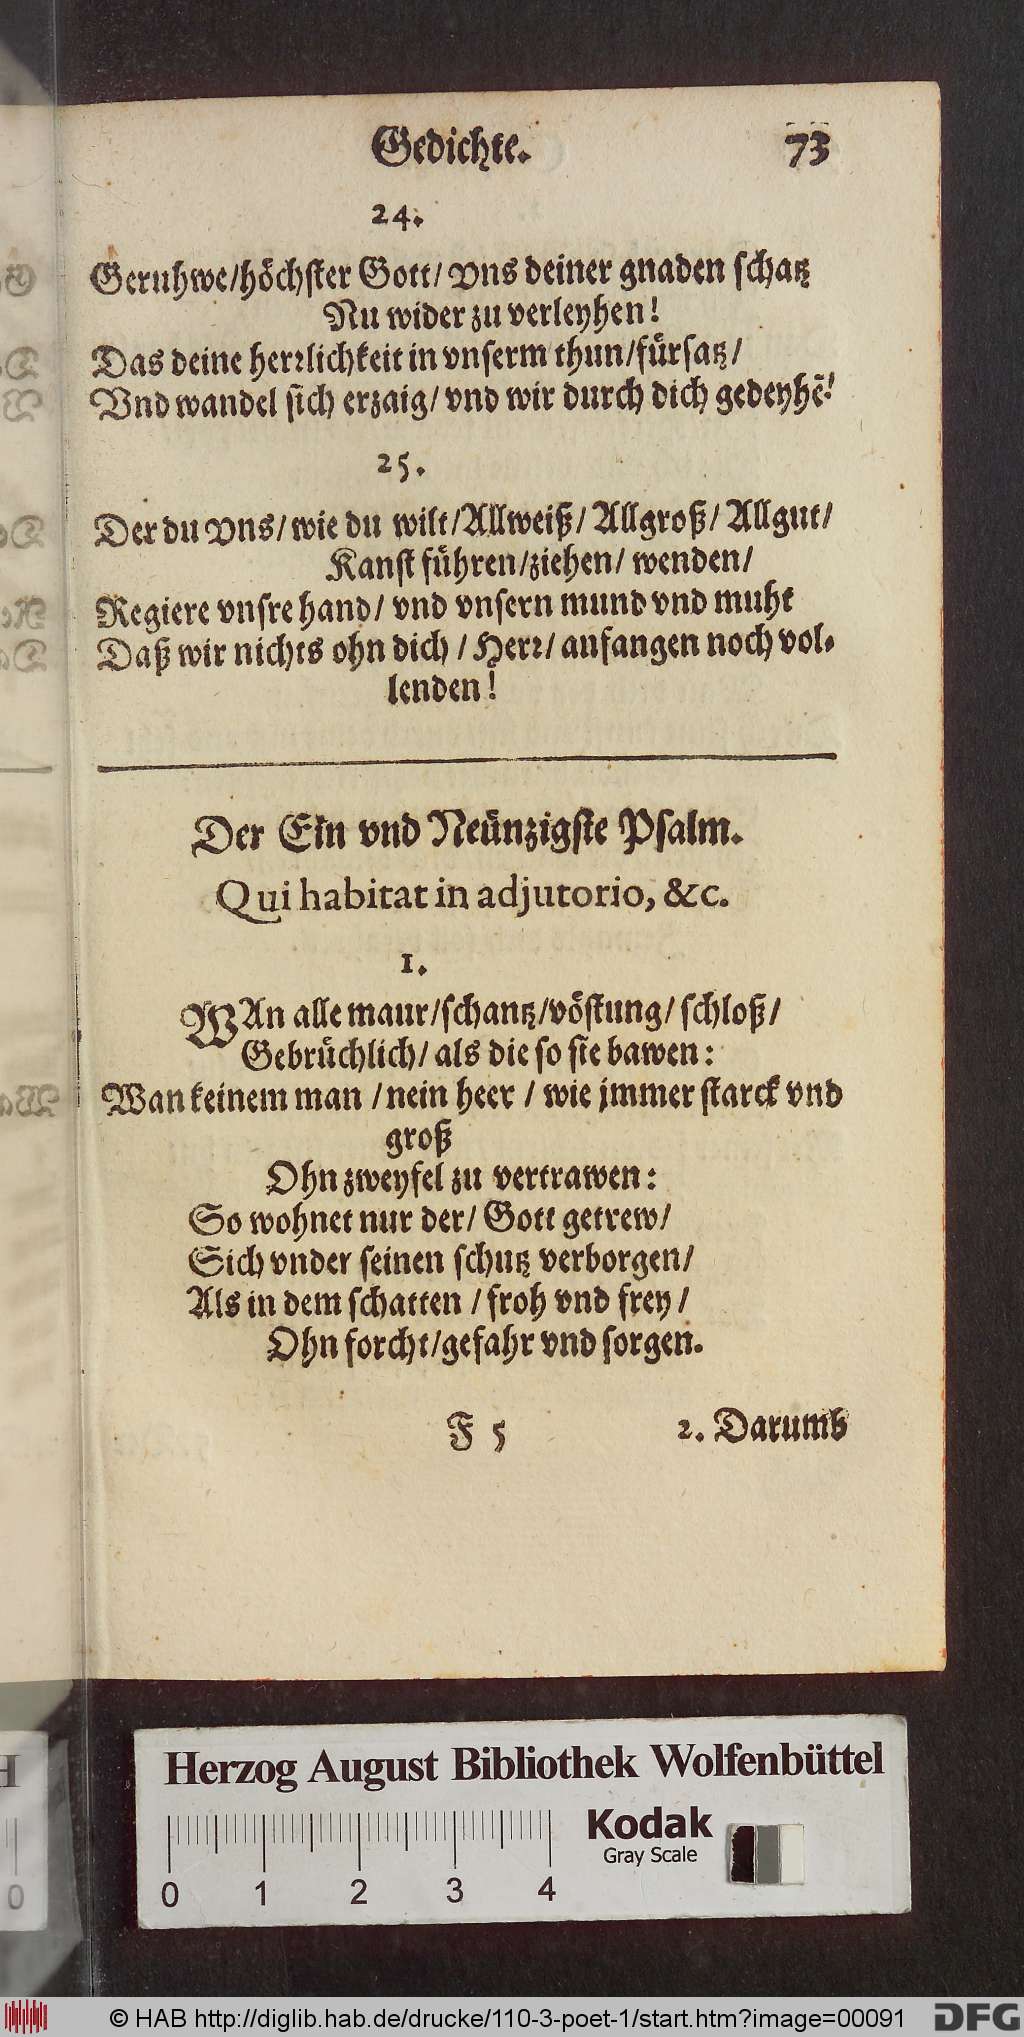 Gedichte. 73
24.
Geruhwe/höchster Gott/ Vns deiner gnaden schatz
Nu wider zu verleyhen!
Das deine herrlichkeit in vnserm thun/fürsatz/
Vnd wandel sich erzaig/ vnd wir durch dich gedeyhẽ!
25.
Der du Vns/ wie du wilt/Allweiß/ Allgroß/ Allgut/
Kanst führen/ziehen/ wenden/
Regiere vnsre hand/ vnd vnsern mund vnd muht
Daß wir nichts ohn dich / Herr/ anfangen noch vol-
lenden!
Der Ein vnd Neünzigste Psalm.
Qui habitat in adjutorio, &c.
1.
WAn alle maur/schantz/vöstung/ schloß/
Gebrüchlich/ als die so sie bawen:
Wan keinem man / nein heer / wie jmmer starck vnd
groß
Ohn zweyfel zu vertrawen:
So wohnet nur der/ Gott getrew/
Sich vnder seinen schutz verborgen/
Als in dem schatten / froh vnd frey /
Ohn forcht/gefahr vnd sorgen.
F 5 2. Darumb
Herzog August Bibliothek Wolfenbüttel
Kodak
Gray Scale
0 1 2 3 4
0
© HAB http://diglib.hab.de/drucke/110-3-poet-1/start.htm?image=00091
DFG